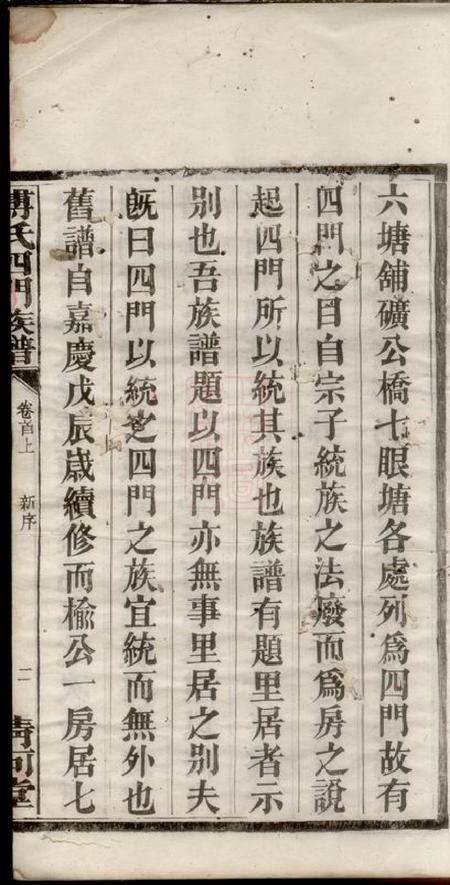 六塘舖礦公橋七眼塘各處列爲四門故有
四門之目自宗子統族之法廢而爲房之說
起四門所以統其族也族譜有題里居者示
別也吾族譜題以四門亦無事里居之別夫
既曰四門以統之四門之族宜統而無外也
舊譜自嘉慶戊辰歲續修而楡公一房居七
傅氏四門族譜
卷首上
新序
二
清河堂